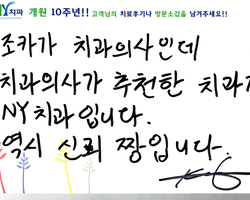 NY치과 개원 10주년!! 고객님의 치료후기나 방문소감을 남겨주세요!!
조카가 치과의사인데
치과의사가 추천한 치과가
NY치과입니다.
역시 신뢰 짱입니다.